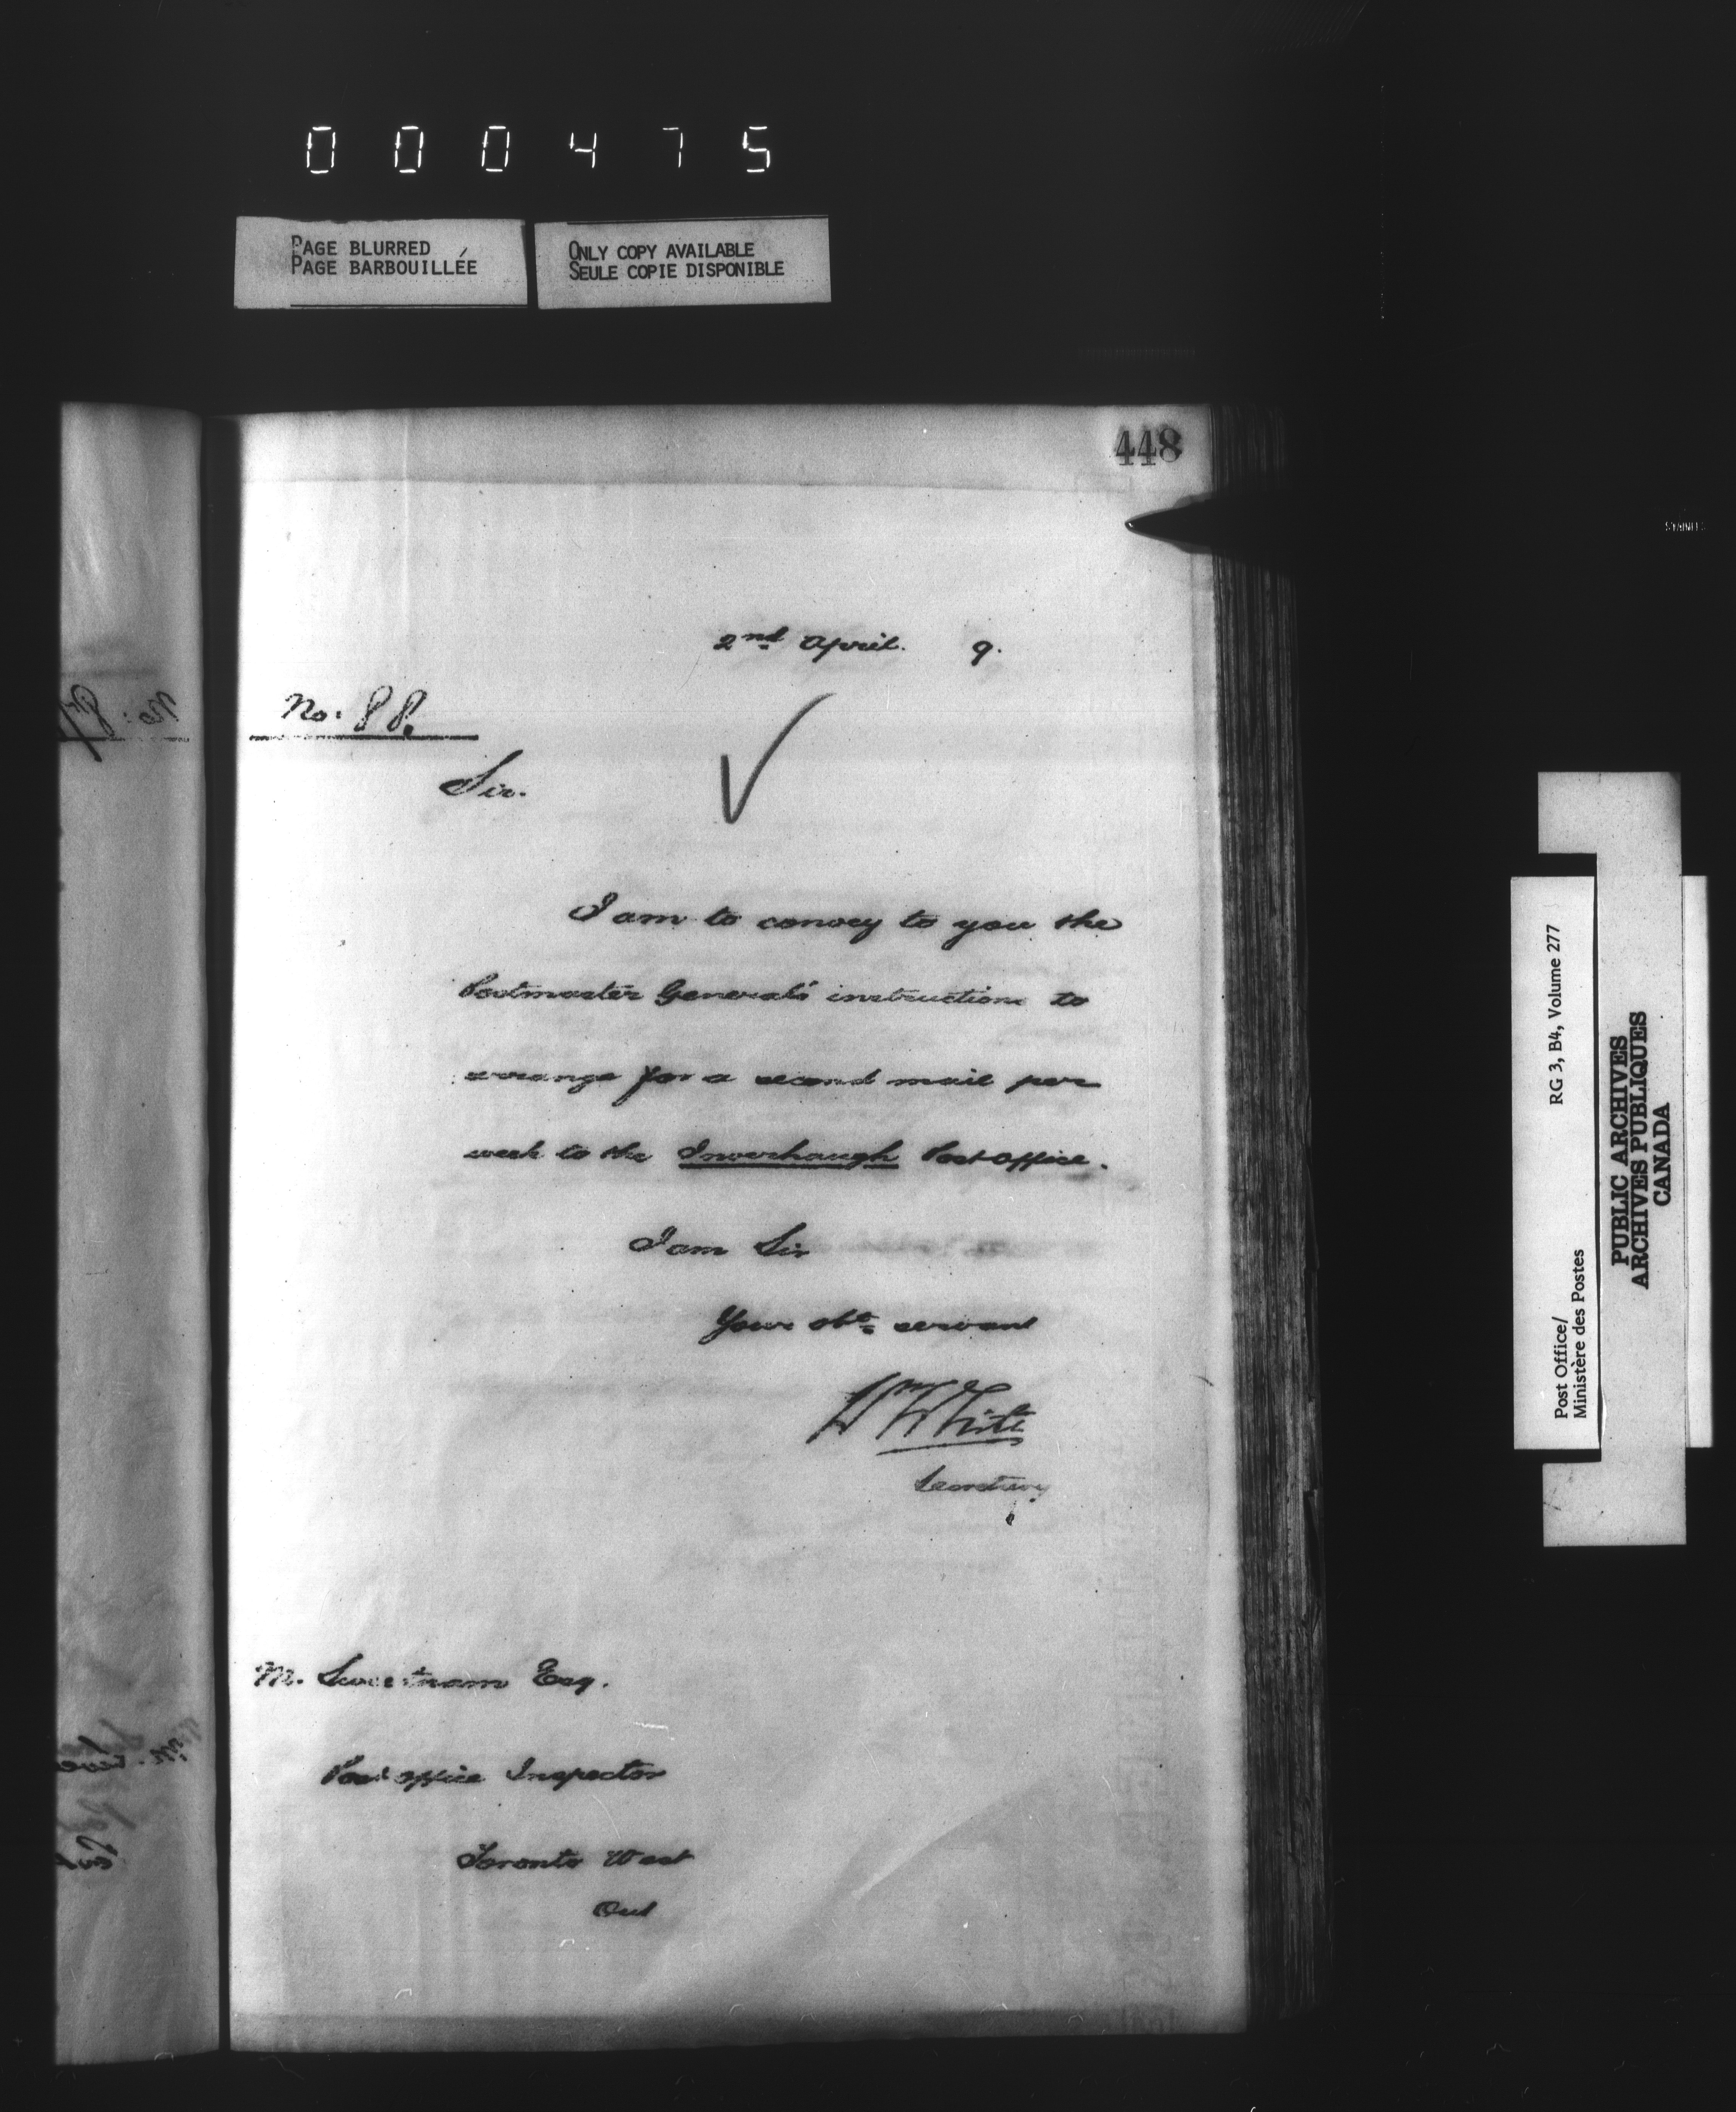 000475
PAGE BLURRED
PAGE BARBOUILLÉE
ONLY COPY AVAILABLE
SEULE COPIE DISPONIBLE
448
2nd April. 9.
No. 88.
Sir.
I am to convey to you the
Postmaster General's instructions to
arrange for a second mail per
week to the Inverhaugh Post Office.
I am Sir
Your obt. servant
Wm White
Secretary
M. Sweetnam Esq.
Post Office Inspector
Toronto West
Ont
No: 87
Post Office/
Ministère des Postes
RG 3, B4, Volume 277
PUBLIC ARCHIVES
ARCHIVES PUBLIQUES
CANADA